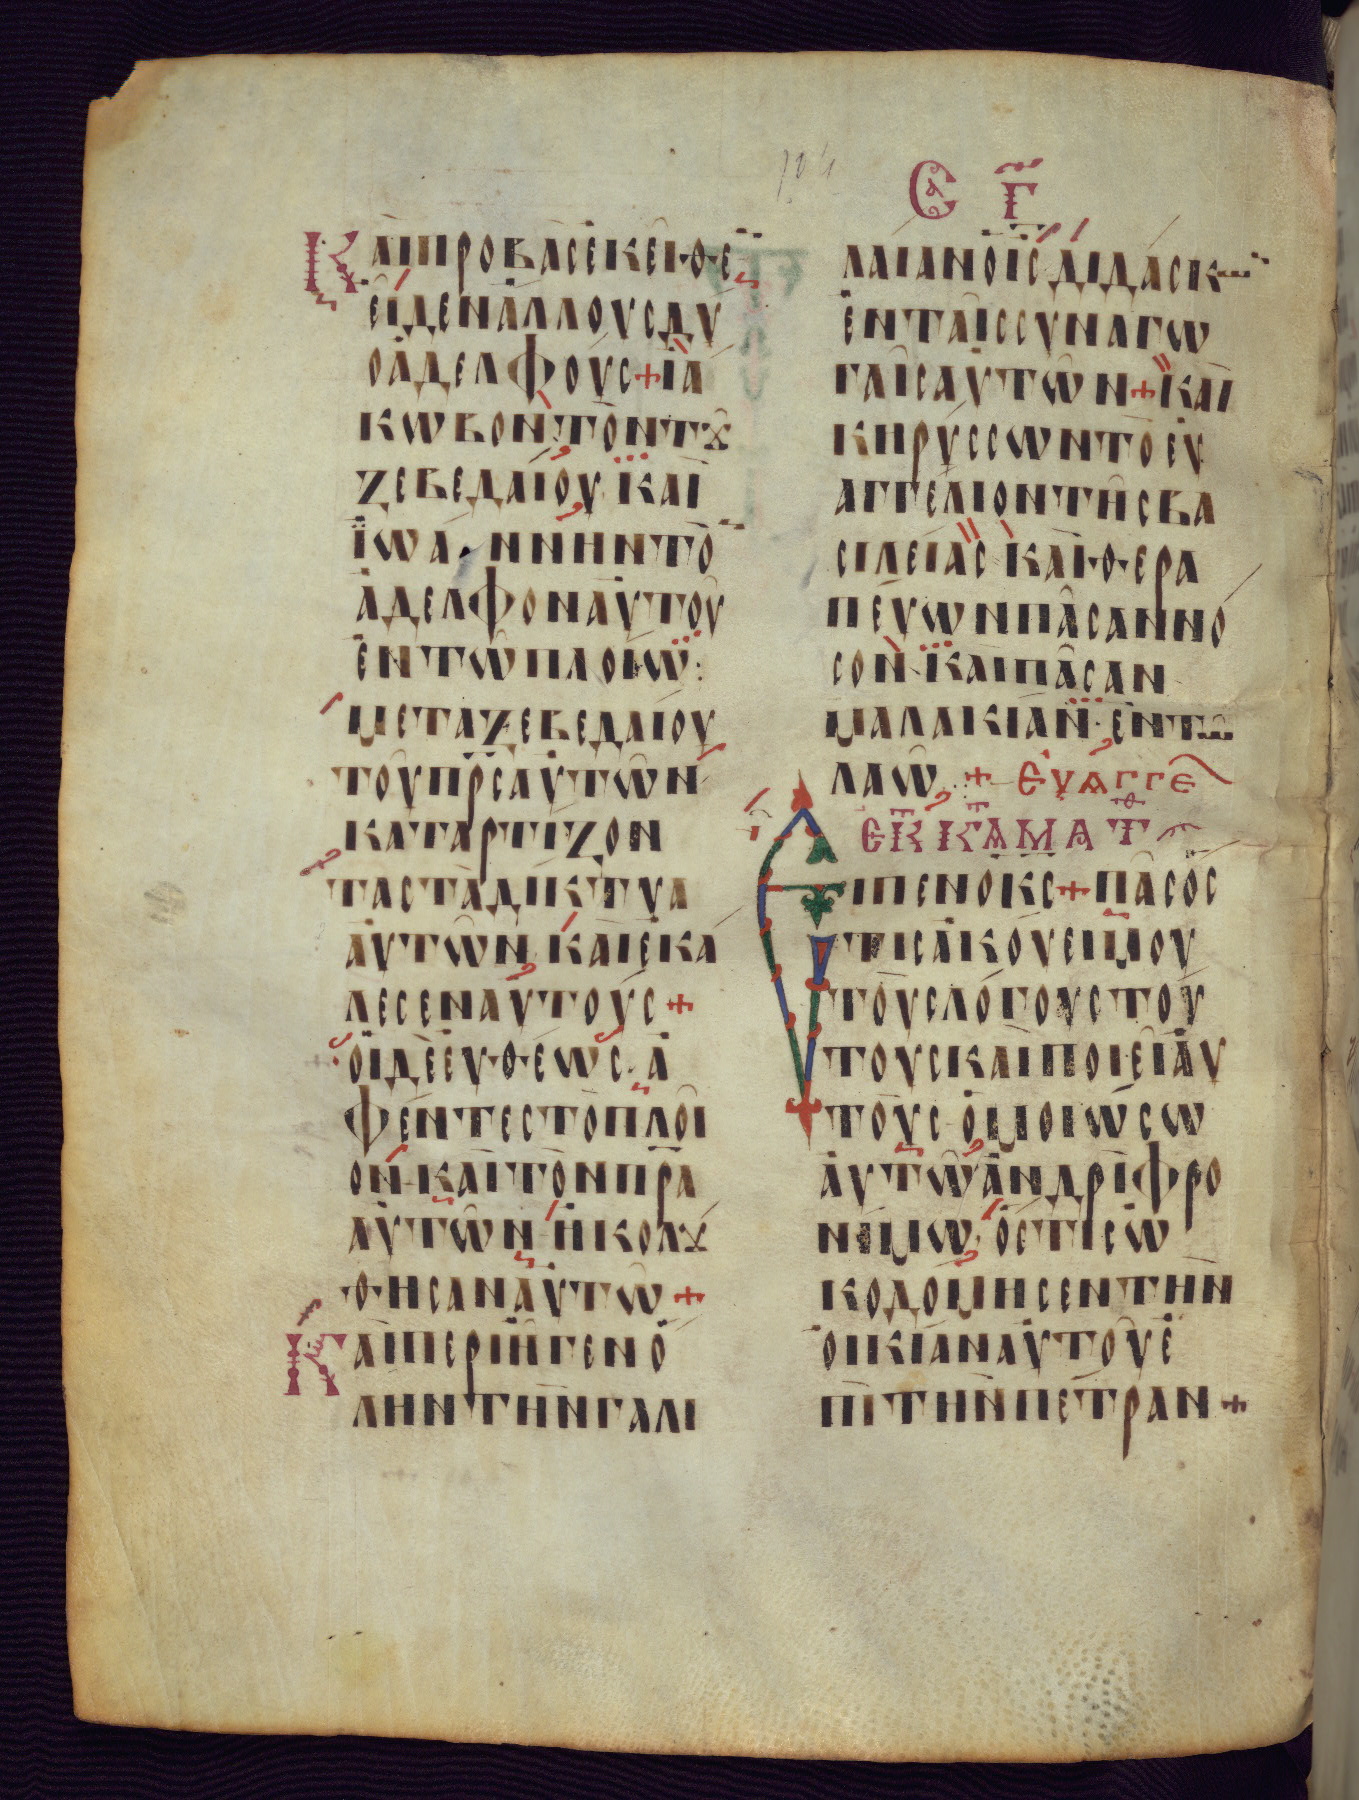 Ϲ Γ̄
Καὶ προβὰς ἐκεῖθε
εἶδεν ἄλλους δύ
ο ἀδελφούς + Ἰά
κωβον τὸν τȣ͂
Ζεβεδαίου καὶ
Ἰωάννην τὸ
ἀδελφὸν αὐτοῦ
ἐν τῶ πλοίω
μετὰ Ζεβεδαίου
τοῦ πρ̅ς αὐτῶν
καταρτίζον
τας τὰ δίκτυα
αὐτῶν καὶ ἐκά
λεσεν αὐτούς +
οἱ δὲ εὐθέως ἀ
φέντες τὸ πλοῖ
ον καὶ τὸν πρ̅α
αὐτῶν ἠκολȣ́
θησαν αὐτῶ +
Καὶ περιῆγεν ὅ
λην τὴν Γαλι
λαίαν ὁ ι̅ς διδάσκ
ἐν ταῖς συναγω
γαῖς αὐτῶν + καὶ
κηρύσσων τὸ εὐ
αγγέλιον τῆς βα
σιλείας καὶ θερα
πεύων πᾶσαν νό
σον καὶ πᾶσαν
μαλακίαν ἐν τῶ
λαῶ + Εὐαγγε
ἐκ τ κ τ Ματθ
Εἶπεν ὁ κ̅ς + πᾶς ὅς
τις ἀκούει μου
τοὺς λόγους τού
τους καὶ ποιεῖ αὐ
τούς ὁμοιώσω
αὐτὸν ἀνδρὶ φρο
νίμω ὅστις ὠ
κοδόμησεν τὴν
οἰκίαν αὐτοῦ ἐ
πὶ τὴν πέτραν +